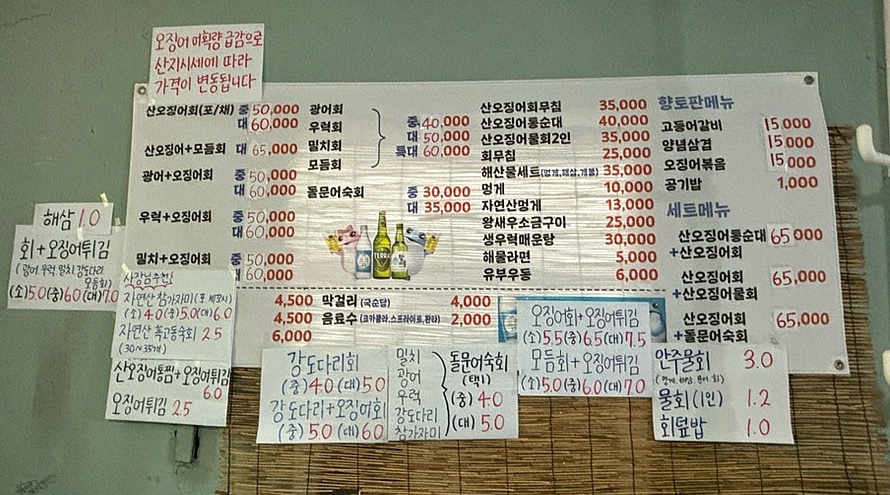 오징어 어획량 급감으로
산지시세에 따라
가격이 변동됩니다
산오징어회(포/채) 중 50,000
대 60,000
산오징어+모듬회 대 65,000
광어+오징어회 중 50,000
대 60,000
우럭+오징어회 중 50,000
대 60,000
밀치+오징어회 중 50,000
대 60,000
광어회
우럭회
밀치회
모듬회
중 40,000
대 50,000
특대 60,000
돌문어숙회 중 30,000
대 35,000
TERRA
산오징어회무침 35,000
산오징어통순대 40,000
산오징어물회2인 35,000
회무침 25,000
해산물세트(멍게,해삼,개불) 35,000
멍게 10,000
자연산멍게 13,000
왕새우소금구이 25,000
생우럭매운탕 30,000
해물라면 5,000
유부우동 6,000
향토판메뉴
고등어갈비 15,000
양념삼겹 15,000
오징어볶음 15,000
공기밥 1,000
세트메뉴
산오징어통순대 65,000
+산오징어회
산오징어회 65,000
+산오징어물회
산오징어회 65,000
+돌문어숙회
4,500 막걸리 (국순당) 4,000
4,500 음료수 (코카콜라,스프라이트,환타) 2,000
6,000
해삼 1.0
회+오징어튀김
(광어, 우럭, 밀치, 강도다리, 모듬회)
(소)5.0 (중)6.0 (대)7.0
사장님추천!
자연산 참가자미
(소)4.0 (중)5.0 (대)6.0
자연산 흑고동숙회 2.5
(30~35개)
산오징어통찜+오징어튀김
6.0
오징어튀김 2.5
강도다리회
(중)4.0 (대)5.0
강도다리+오징어회
(중) 5.0 (대) 6.0
밀치
광어
우럭
강도다리
참가자미
돌문어숙회
(택1)
(중) 4.0
(대) 5.0
오징어회+오징어튀김
(소)5.5 (중)6.5 (대)7.5
모듬회+오징어튀김
(소)5.0 (중)6.0 (대)7.0
안주물회 3.0
물회(1인) 1.2
회덮밥 1.0